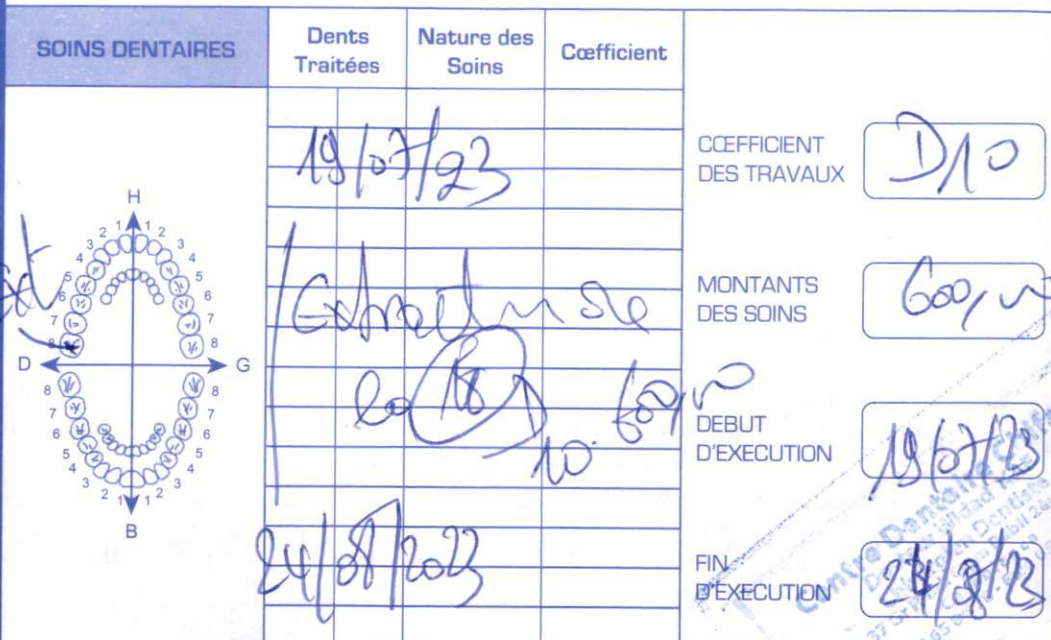 SOINS DENTAIRES
Dents Traitées
Nature des Soins
Cœfficient
19/07/23
Extraction de
la 18 D10 600,00
24/08/2023
ext
H
1 1
2 2
3 3
4 4
5 5
6 6
7 7
8 8
D G
8 8
7 7
6 6
5 5
4 4
3 3
2 2
1 1
B
CŒFFICIENT
DES TRAVAUX
D10
MONTANTS
DES SOINS
600,00
DEBUT
D'EXECUTION
19/07/23
FIN
D'EXECUTION
24/8/23
Centre Dentaire